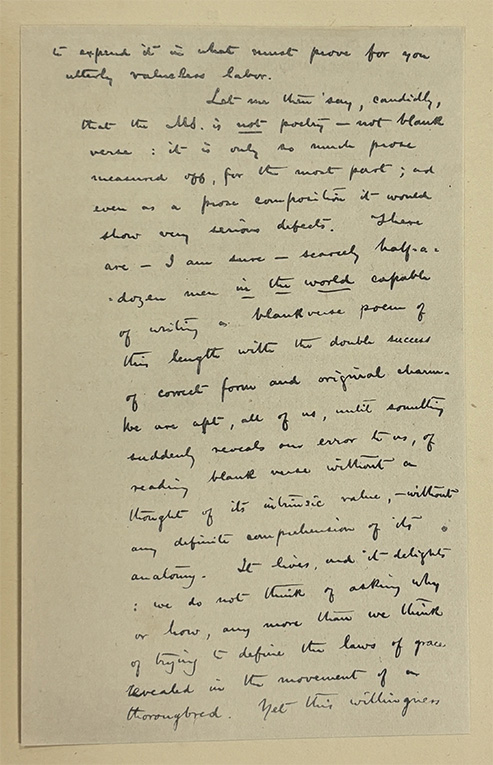 to expend it in what must prove for you
utterly valueless labor.
Let me then say, candidly,
that the MS. is not poetry — not blank
verse : it is only so much prose
measured off, for the most part ; and
even as a prose composition it would
show very serious defects. There
are — I am sure — scarcely half-a-
-dozen men in the world capable
of writing a blank verse poem of
this length with the double success
of correct form and original charm.
We are apt, all of us, until something
suddenly reveals our error to us, of
reading blank verse without a
thought of its intrinsic value, — without
any definite comprehension of its
anatomy. It lives, and it delights
: we do not think of asking why
or how, any more than we think
of trying to define the laws of grace
revealed in the movement of a
thoroughbred. Yet this willingness